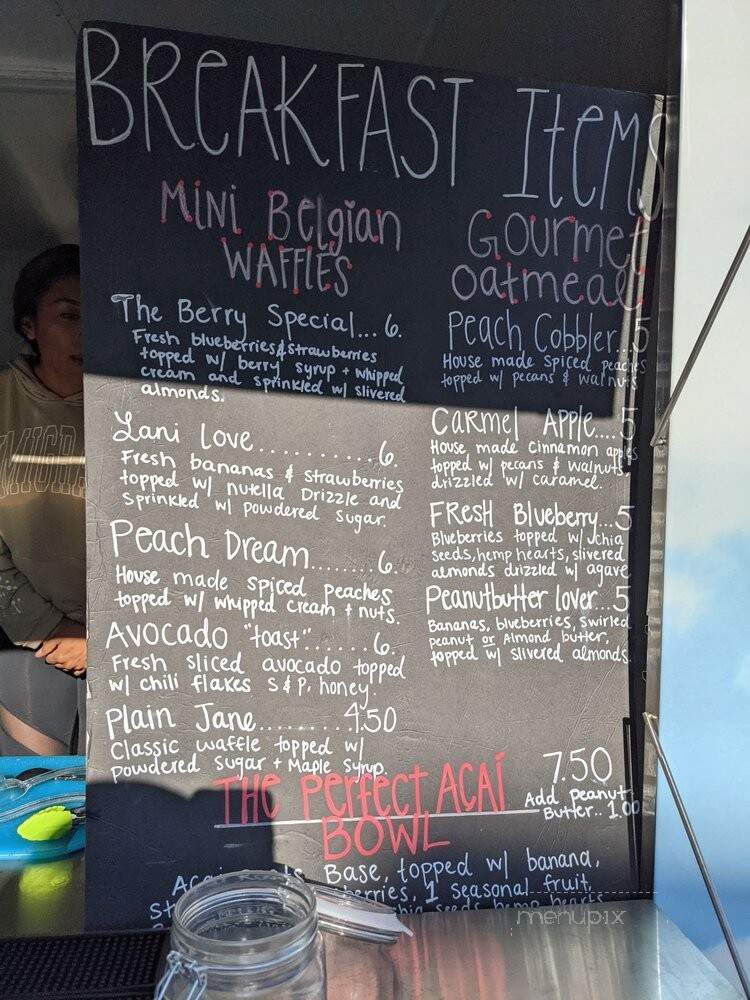 BREAKFAST Items
MiNi Belgian
WAFFLES
The Berry Special... 6.
Fresh blueberries & strawberries
topped w/ berry syrup + whipped
cream and sprinkled w/ slivered
almonds.
Lani Love.......... 6.
Fresh bananas & strawberries
topped w/ nutella Drizzle and
Sprinkled w/ powdered sugar.
Peach Dream........ 6.
House made spiced peaches
topped w/ whipped cream + nuts.
Avocado "toast"...... 6.
Fresh sliced avocado topped
w/ chili flakes S & P, honey.
Plain Jane........ 4.50
Classic waffle topped w/
powdered sugar + Maple Syrup.
Gourmet
oatmeal
Peach Cobbler...5
House made spiced peaches
topped w/ pecans & walnuts
Carmel Apple....5
House made cinnamon apples
topped w/ pecans & walnuts,
drizzled w/ caramel.
FResH Blueberry...5
Blueberries topped w/ chia
seeds, hemp hearts, slivered
almonds drizzled w/ agave
Peanutbutter lover...5
Bananas, blueberries, swirled
peanut or Almond butter,
topped w/ slivered almonds.
THe PeRfecT ACAí
BOWL
7.50
Add peanut
Butter.. 1.00
Base, topped w/ banana,
berries, 1 seasonal fruit,
seeds hemp hearts
MIGR
menupix